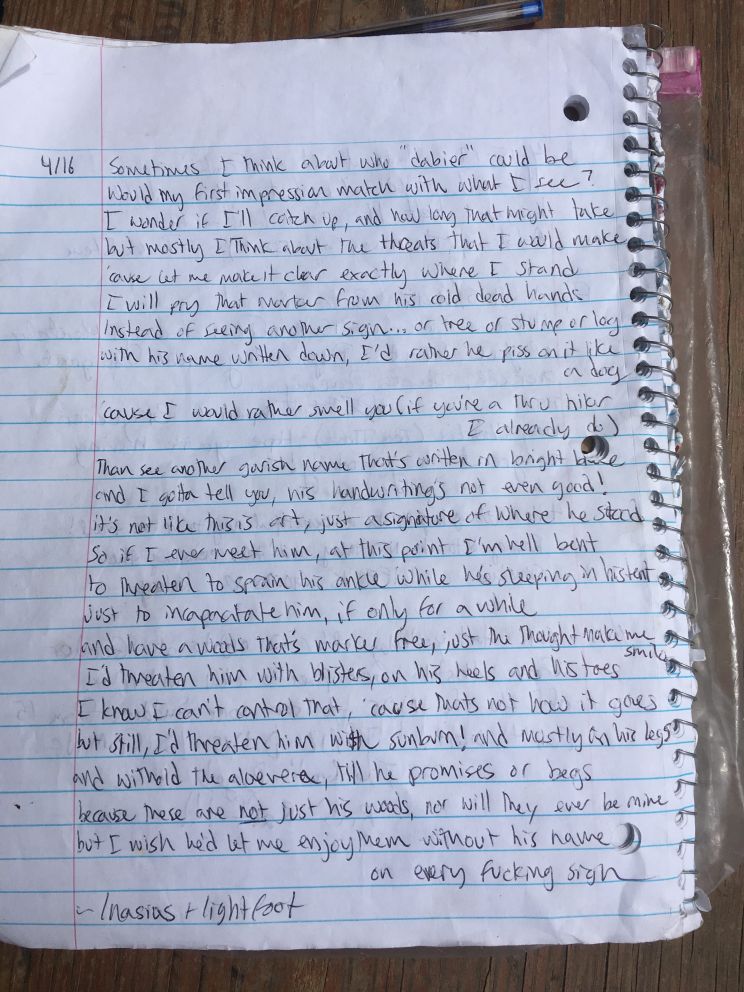 4/16 Sometimes I think about who "dabier" could be
Would my first impression match with what I see?
I wonder if I'll catch up, and how long that might take
but mostly I think about the threats that I would make
'cause let me make it clear exactly where I stand
I will pry that marker from his cold dead hands
Instead of seeing another sign... or tree or stump or log
with his name written down, I'd rather he piss on it like
a dog
'cause I would rather smell you (if you're a thru hiker
I already do)
Than see another garish name that's written in bright blue
and I gotta tell you, his handwriting's not even good!
it's not like this is art, just a signature of where he stood
So if I ever meet him, at this point I'm hell bent
to threaten to sprain his ankle while he's sleeping in his tent
just to incapacitate him, if only for a while
and have a woods that's marker free, just the thought make me
smile
I'd threaten him with blisters, on his heels and his toes
I know I can't control that, 'cause thats not how it goes
but still, I'd threaten him with sunburn! and mostly on his legs
and withold the aloevera, till he promises or begs
because these are not just his woods, nor will they ever be mine
but I wish he'd let me enjoy them without his name
on every fucking sign
~ Inasias + lightfoot